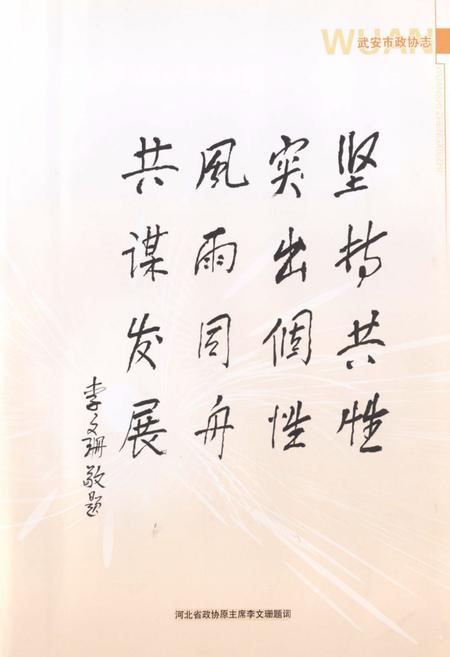 WUAN
武安市政协志
坚持共性
突出個性
風雨同舟
共谋发展
李文珊敬题
河北省政协原主席李文珊题词